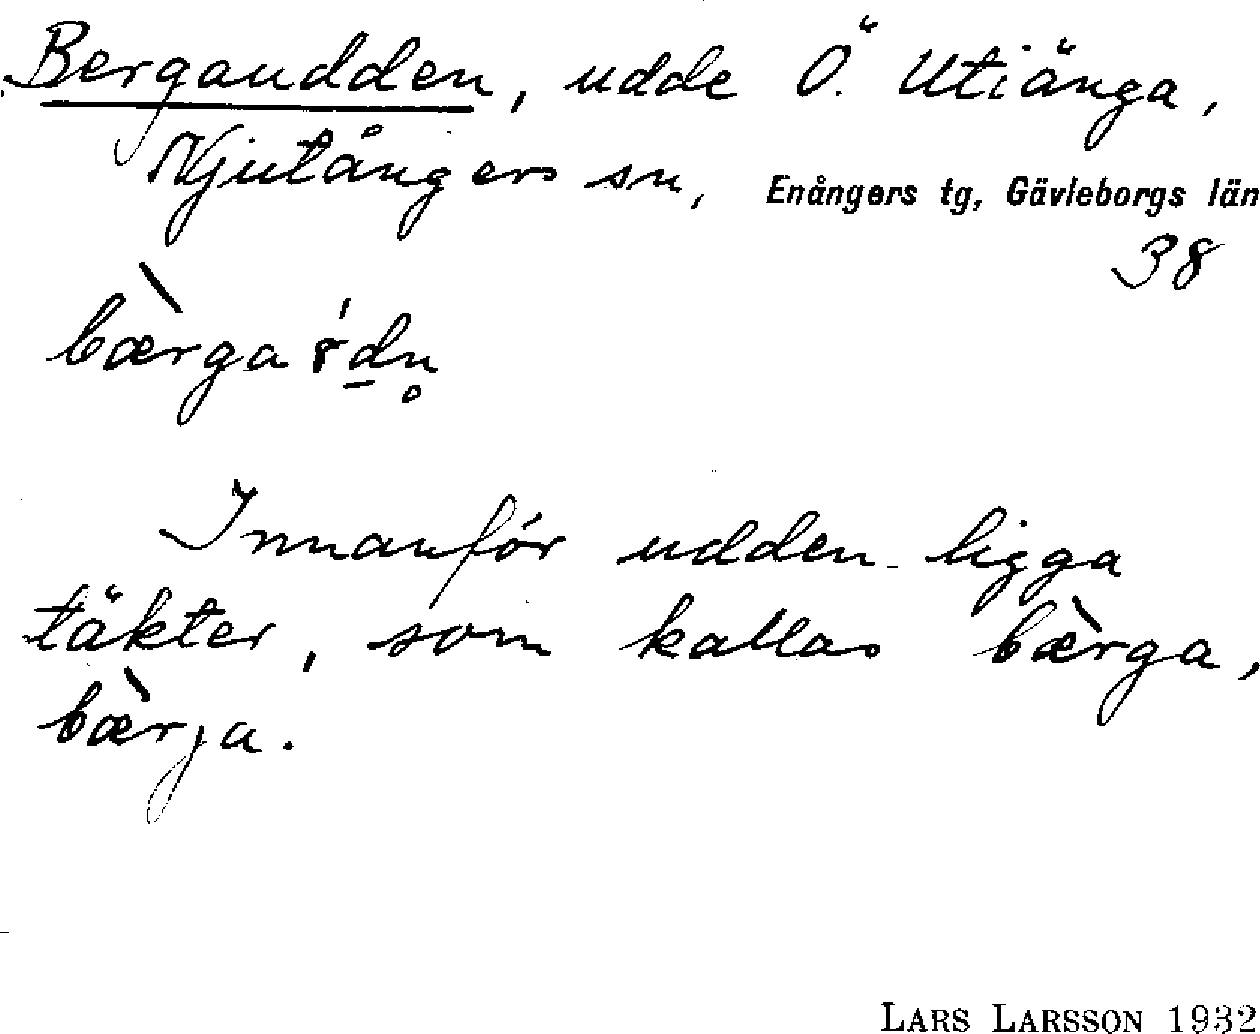 Bergaudden, udde Ö. Utiänga,
Njutångers sn, Enångers tg, Gävleborgs län
38
bæ̀rga
Innanför udden ligga
täkter, som kallas bæ̀rga,
bæ̀rja.
LARS LARSSON 1932